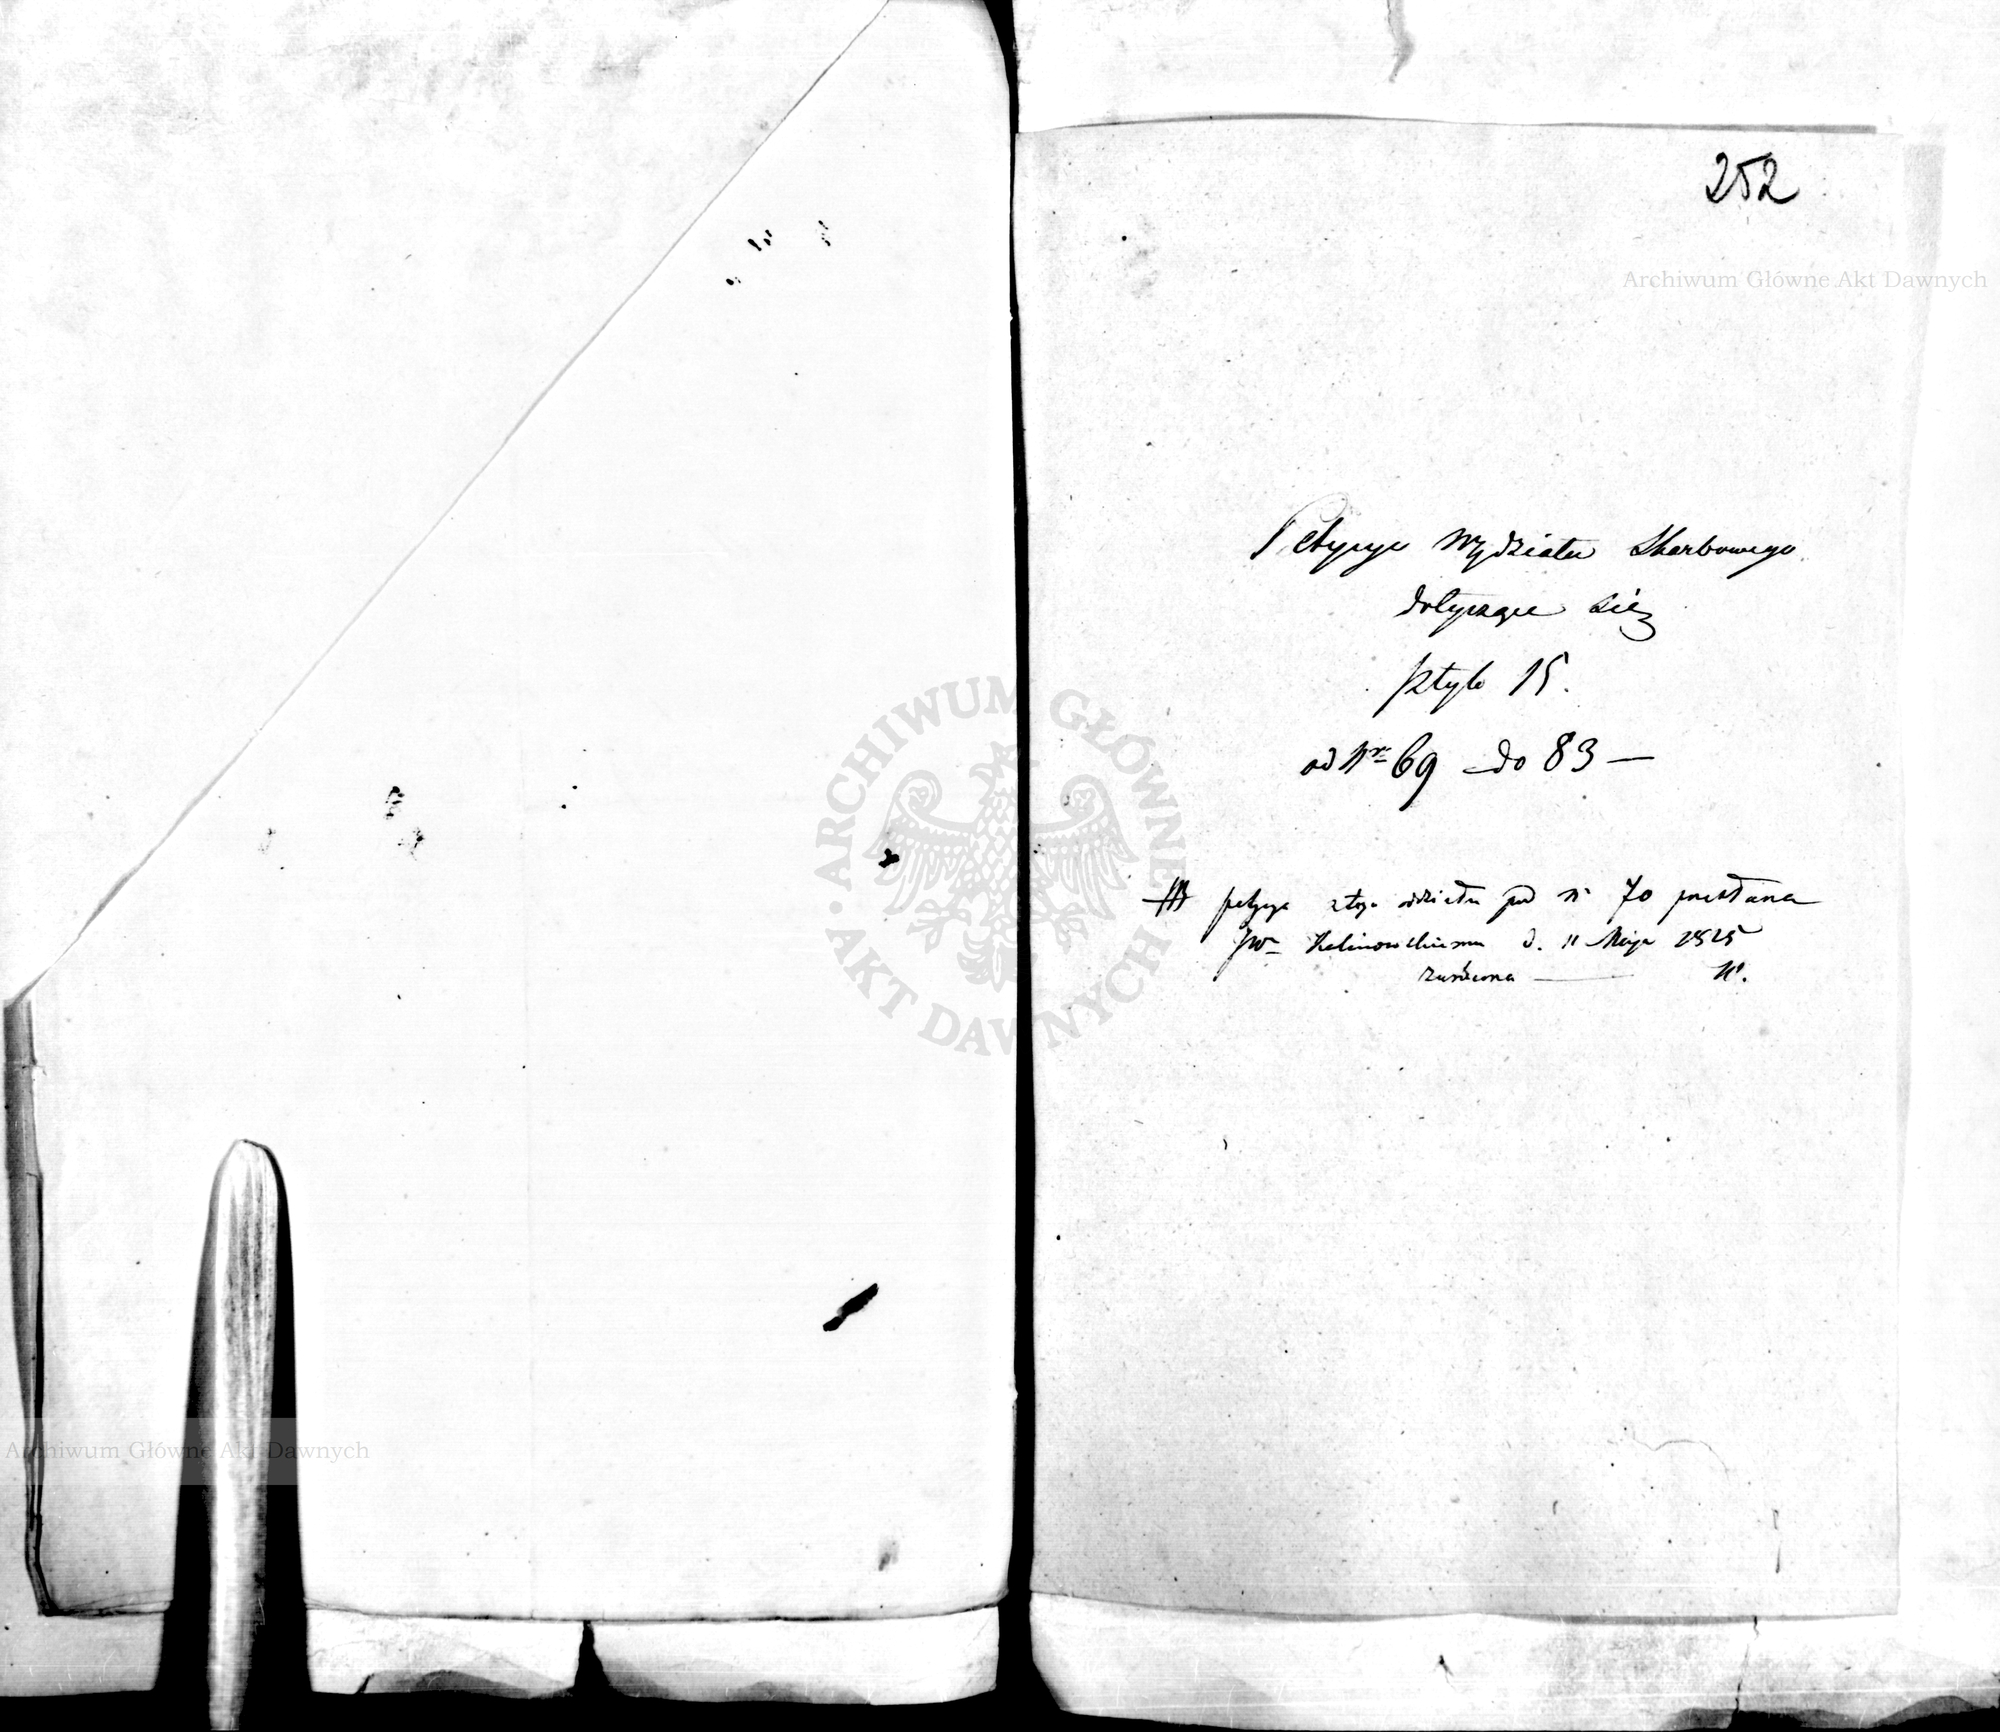 252
Archiwum Główne Akt Dawnych
Petycye Wydziału Skarbowego
dotyczące się
sztyk 15.
od Nro 69 do 83 —
petycya z tego oddziału pod N 70 przesłana
JWo Kalinowskiemu d. 11 Maja 1825
zwrócona — K.
ARCHIWUM GŁÓWNE AKT DAWNYCH
Archiwum Główne Akt Dawnych